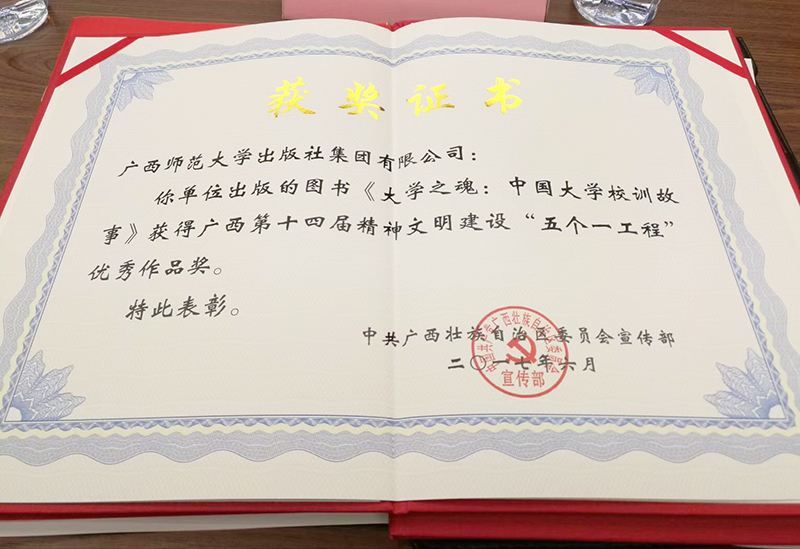 获奖证书
广西师范大学出版社集团有限公司：
你单位出版的图书《大学之魂：中国大学校训故
事》获得广西第十四届精神文明建设“五个一工程”
优秀作品奖。
特此表彰。
中共广西壮族自治区委员会宣传部
二〇一七年六月
中国共产党广西壮族自治区委员会
宣传部